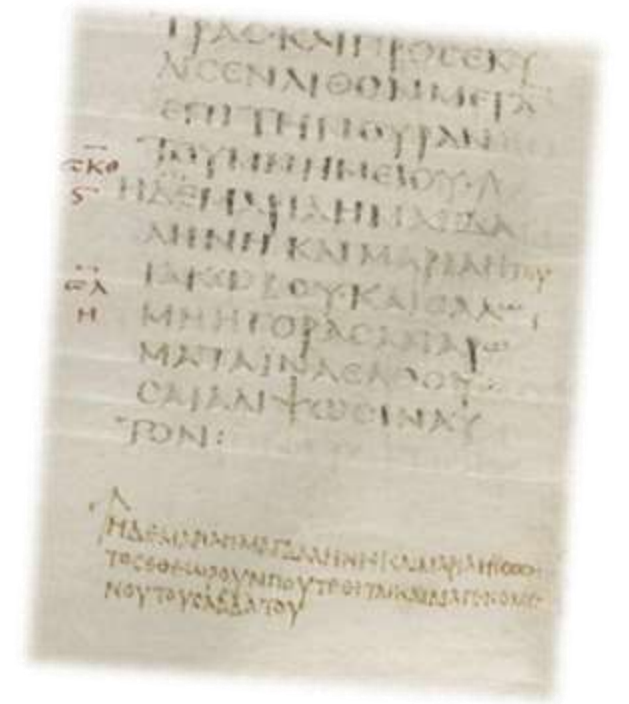 ΤΡΑϹ·ΚΑΙΠΡΟϹΕΚΥ
ΛΙϹΕΝΛΙΘΟΝΜΕΓΑ
ΕΠΙΤΗΝΘΥΡΑΝ
ΤΟΥΜΝΗΜΕΙΟΥ·
ϹΚΘ
Ϛ ΗΔΕΜΑΡΙΑΗΜΑΓΔΑ
ΛΗΝΗΚΑΙΜΑΡΙΑΗΤΟΥ
ϹΛ ΙΑΚΩΒΟΥ·ΚΑΙϹΑΛΩ
Η ΜΗΗΓΟΡΑϹΑΝΑΡΩ
ΜΑΤΑΙΝΑΕΛΘΟΥ
ϹΑΙΑΛΙΨΩϹΙΝΑΥ
ΤΟΝ:
ΗΔΕΜΑΡΙΑΗΜΑΓΔΑΛΗΝΗΚΑΙΜΑΡΙΑΗΙΩϹΗ
ΤΟϹΕΘΕΩΡΟΥΝΠΟΥΤΕΘΕΙΤΑΙΚΑΙΔΙΑΓΕΝΟΜΕ
ΝΟΥΤΟΥϹΑΒΒΑΤΟΥ